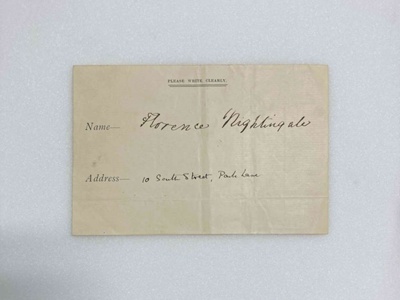 PLEASE WRITE CLEARLY.
Name— Florence Nightingale
Address— 10 South Street, Park Lane